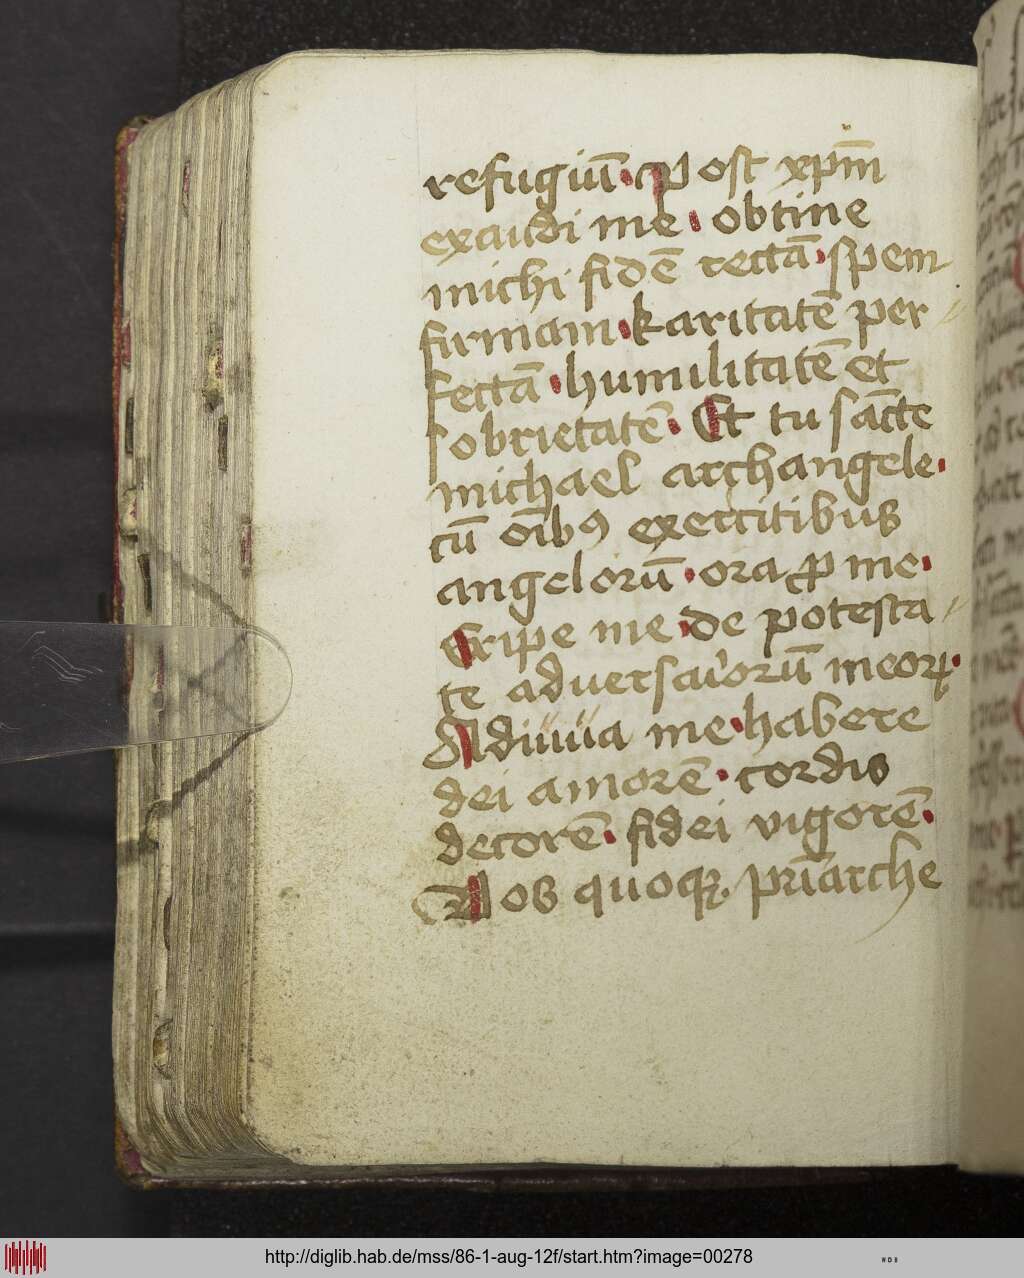 refugiū. Post xp̄m
exaudi me. obtine
michi fidē rectā. spem
firmam. karitatē per
fectā. humilitatē et
sobrietatē. Et tu sācte
michael archangele.
cū oībꝰ exercitibus
angelorū. ora ꝓ me.
Eripe me de potesta
te adversariorū meoꝝ.
Adiuua me habere
dei amorē. cordis
decorē. fidei vigorē.
Vos quoqꝫ pr̄iarche
http://diglib.hab.de/mss/86-1-aug-12f/start.htm?image=00278